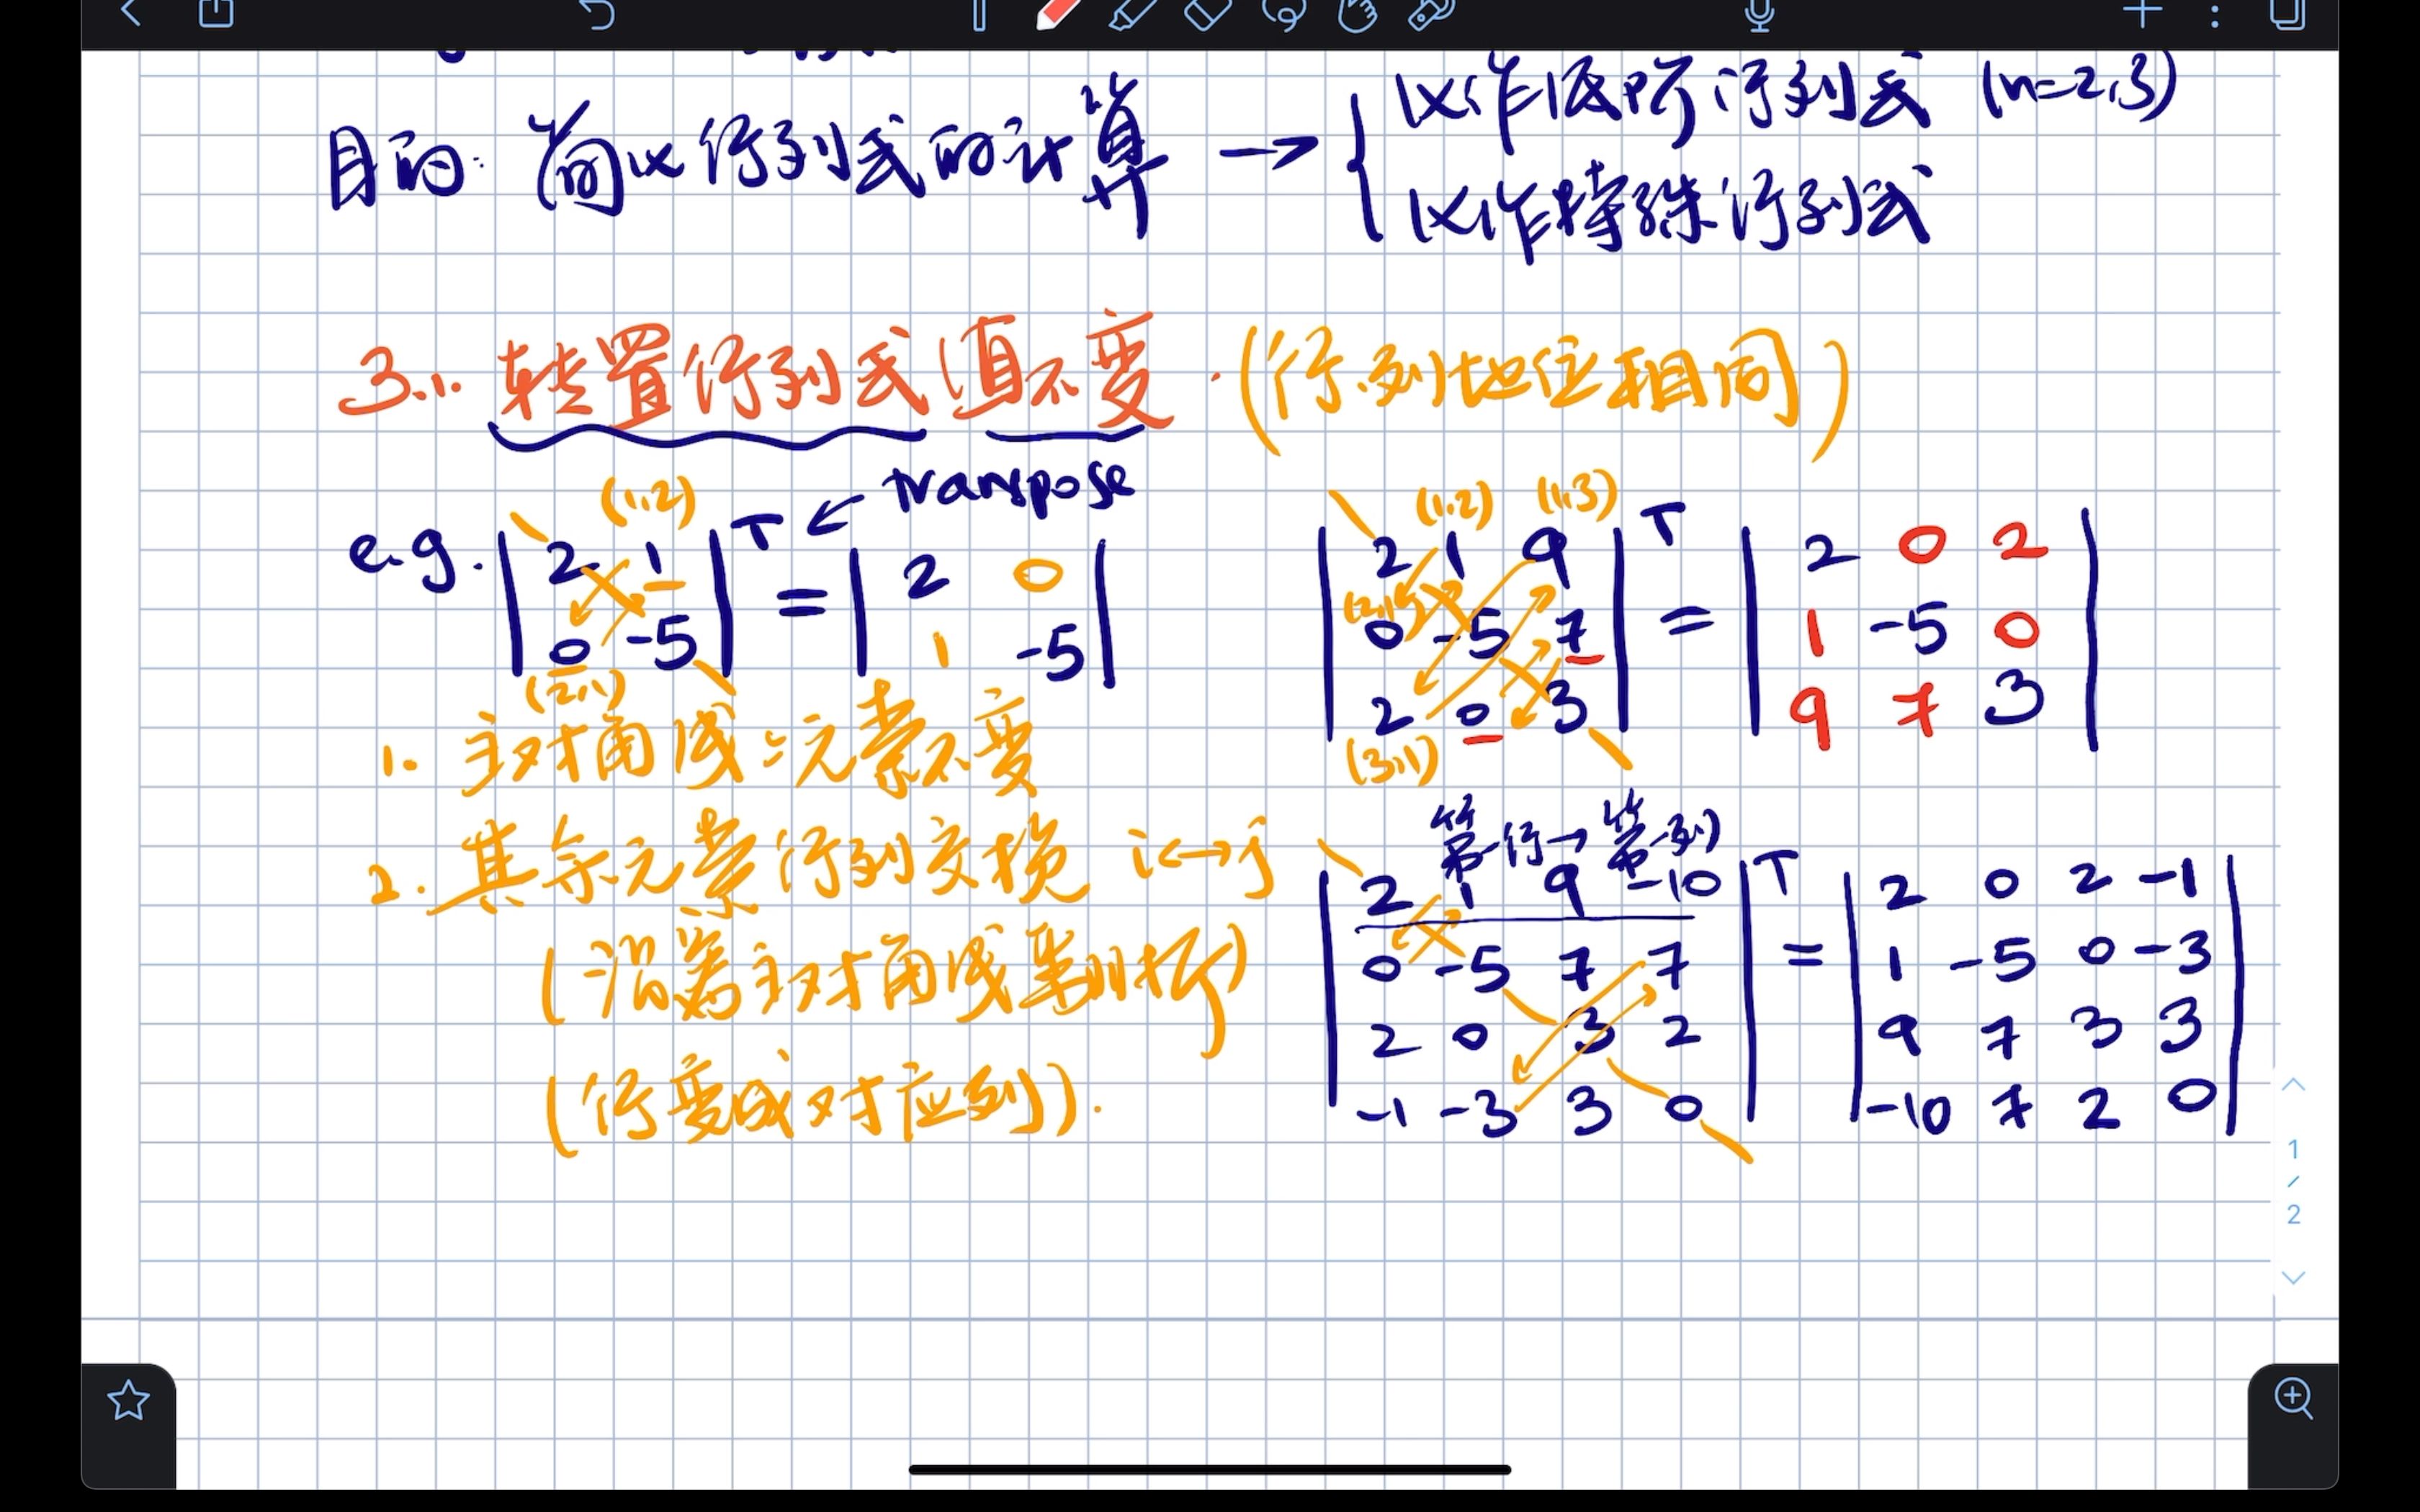 目的: 简化行列式的计算 → { 化作低阶行列式 (n=2,3)
化作特殊行列式
3.1. 转置行列式值不变. (行.列地位相同)
e.g. |2 1; 0 -5|ᵀ = |2 0; 1 -5|
(1,2)
(2,1)
T ← transpose
1. 主对角线:元素不变
2. 其余元素行列交换 i↔j
(沿着主对角线翻折)
(行变成对应列).
(1,2) (1,3)
(2,1)
(3,1)
|2 1 9; 0 -5 7; 2 0 3|ᵀ = |2 0 2; 1 -5 0; 9 7 3|
第一行→第一列
|2 1 9 -10; 0 -5 7 7; 2 0 3 2; -1 -3 3 0|ᵀ = |2 0 2 -1; 1 -5 0 -3; 9 7 3 3; -10 7 2 0|
1
/
2